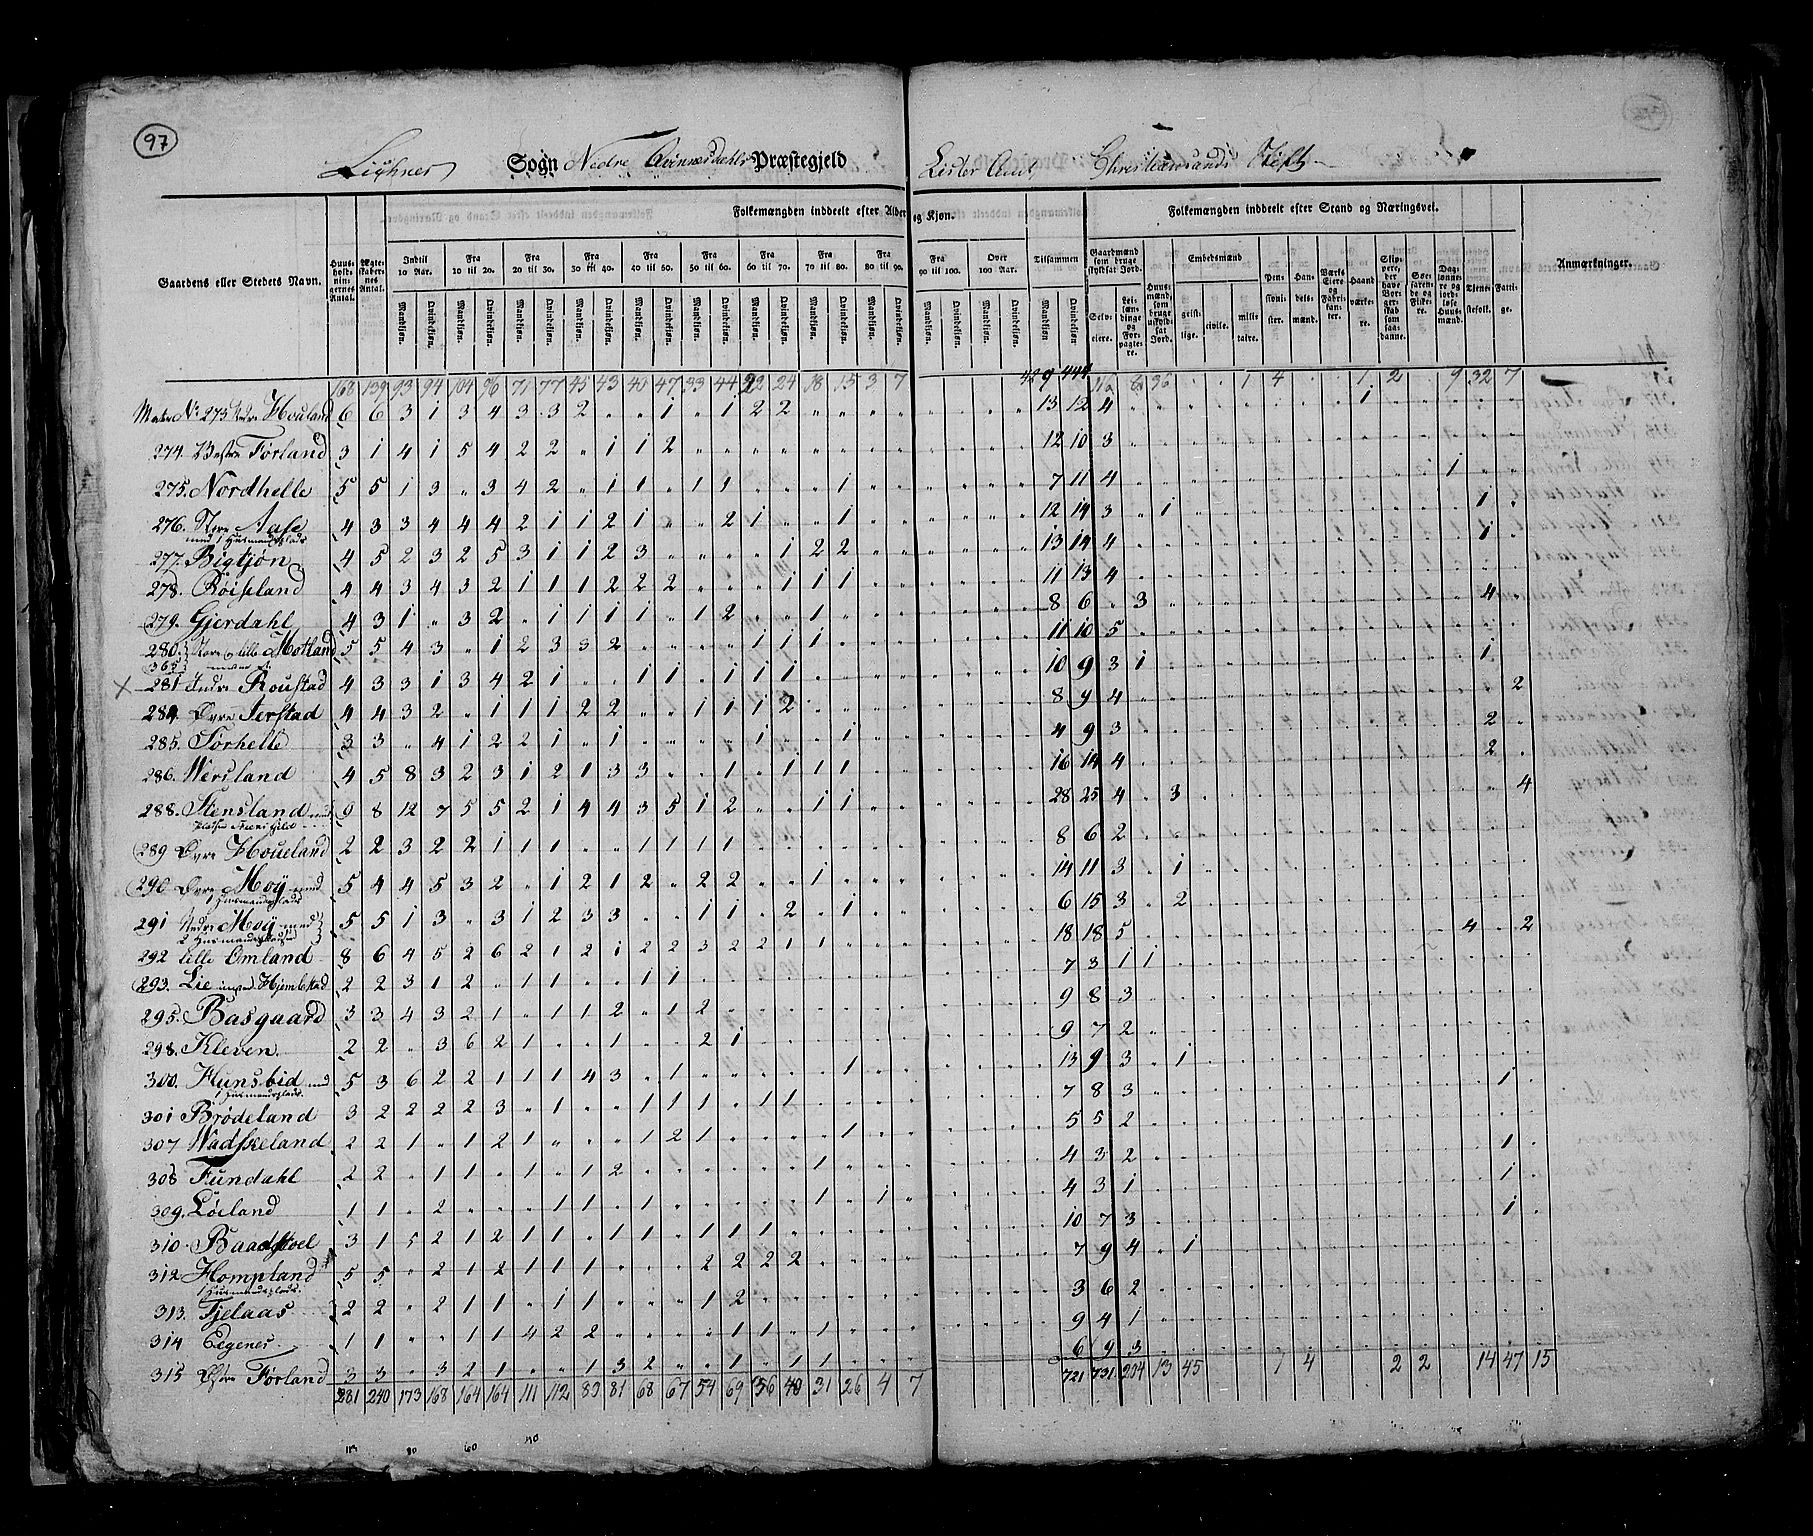 97
Sogn Nedre Qvinnesdahls Præstegjeld Lister Amt, Christiansands Stift
Folkemængden inddeelt efter Alder og Kjøn.
Folkemængden inddeelt efter Stand og Næringsvei.
Gaardens eller Stedets Navn.
Huus-holdningernes Antal.
Ægteskabernes Antal.
Indtil 10 Aar. Fra 10 til 20. Fra 20 til 30. Fra 30 til 40. Fra 40 til 50. Fra 50 til 60. Fra 60 til 70. Fra 70 til 80. Fra 80 til 90. Fra 90 til 100. Over 100 Aar. Tilsammen
Mandkjøn. Qvindekjøn.
Gaardmænd som bruge skyldsat Jord.
Selveiere. Leilændinge og Forpagtere.
Huusmænd, som bruge uskyldsat Jord.
Embedsmænd
geistlige. civile. militaire.
Pensionister. Handelsmænd. Værks Eiere og Fabrikanter. Haandværkere.
Søefarende og Fiskere.
Tjenestefolk. Fattige.
Anmærkninger.
168 139 93 94 104 96 71 77 45 43 40 47 33 44 22 24 18 15 3 7 429 444
Matr No 273 Nedre Houland 6 6 3 1 3 4 3 3 2 " " 1 " 1 2 2 13 12 4
274 Vestre Førland 3 1 4 1 5 4 2 2 " 1 1 2 12 10 3
275. Nordhelle 5 5 1 3 " 3 4 2 " 1 1 " 1 1 " " " 1 7 11 4
276. Aase 4 3 3 4 4 4 2 1 1 2 1 " " 2 1 " " 1 12 14 3 " 1
277. Bigtjøn 4 5 2 3 2 5 3 1 1 2 3 " " " " 1 2 2 13 14 4
278. Røiseland 4 4 3 4 3 2 1 1 1 2 2 2 " " " 1 1 1 11 13 4
279. Gjerdahl 4 3 1 " 3 2 " 1 1 1 1 " 1 2 " " 1 8 6 " 3
280. 365 Motland 5 5 4 3 " 1 2 3 3 2 " " " " 1 1 1 11 10 5
281 Indre Roustad 4 3 3 1 3 4 2 1 " " 1 1 " 1 1 1 10 9 3 1
284. Øvre Ierstad 4 4 3 2 " 1 1 1 2 2 " " 1 1 1 2 8 9 4
285. Førhelle 3 3 " 4 1 2 2 1 " 1 " " " " 1 " " 1 4 9 3
286. Wersland 4 5 8 3 2 3 1 2 1 3 3 " " 1 " 1 1 1 16 14 4
288. Stensland 9 8 12 7 5 5 2 1 4 4 3 5 1 2 " " 1 1 28 25 4 " 3
289 Øvre Houeland 2 2 3 2 2 1 1 1 " " 1 1 1 1 8 6 2
290 Øvre Moÿ med 5 4 4 5 3 2 " 1 2 1 2 " 2 2 " " 1 14 11 3 " 1
1 Huusmandsplads
291 Nedre Moÿ med 5 5 1 3 " 3 1 2 3 3 " " 1 1 " 2 " 1 6 15 3 " 2
2 Huusmandspladse
292 Lille Omland 8 6 4 5 2 6 2 1 2 1 2 2 3 2 2 1 1 18 18 5
293. Lie Hjemlestad 2 2 3 1 2 " 1 1 " " 1 1 7 3 1 1
295. Basgaard 3 3 4 3 2 1 " 1 1 2 " 1 2 9 8 3
298. Kleven. 2 2 " 3 6 2 1 " " 1 " " 2 1 9 7 2
300. Hunsbid med 5 3 6 2 2 1 1 1 4 3 " 1 " " " " " 1 13 9 3 " 1
1 Huusmandsplads
301 Brødeland 3 2 2 2 2 3 " 1 " " 1 1 1 " 1 1 7 8 3
307 Wadskeland 2 2 1 " 1 2 1 " " " 1 2 1 " " " " 1 5 5 2
308 Fundahl 2 2 " 1 1 " 1 " 1 2 " " " " " " 1 4 3 2
309. Løiland 1 1 " 2 " " " 1 1 " 1 " " " " " 1 " 1 4 3 1
310. Baadstoel 3 1 5 2 1 2 1 1 1 " 1 " 1 1 1 10 7 3
312 Hompland 5 5 " 2 1 2 1 1 1 " " " 2 2 2 2 7 9 4 " 1
1 Huusmandsplads
313. Fjelaas 2 2 " 2 1 1 " 1 1 " " " 1 2 3 6 2
314 Eegenes. 1 1 " " 1 1 4 2 2 " " " " 1 1 " 1 9 4 1
315 Østre Førland 3 3 " 3 2 1 " " 1 3 2 " " 1 " 1 1 6 9 3
281 240 173 168 164 164 111 112 83 81 68 67 54 69 36 40 31 26 4 7 721 731 204 13 45 1 4 2 2 14 47 15